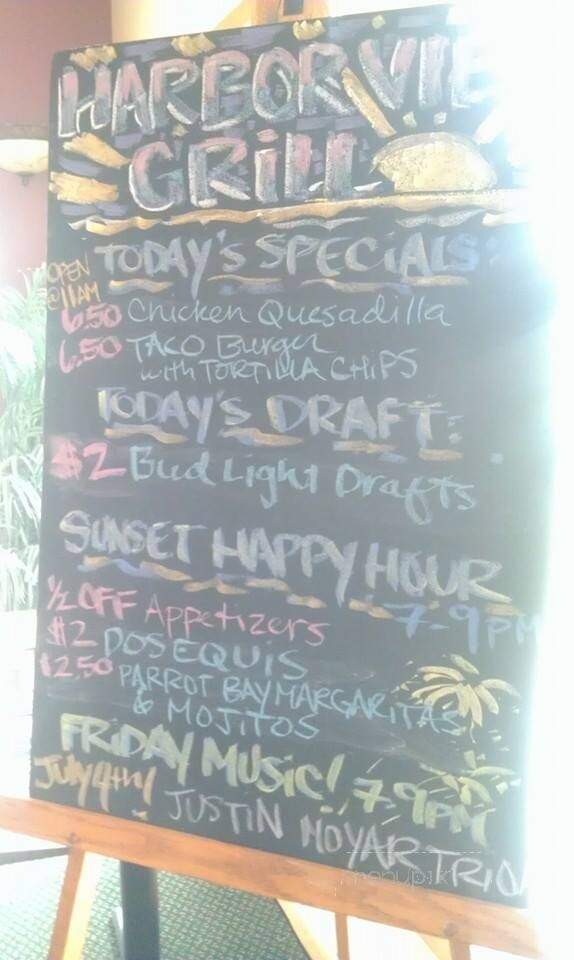 HARBORVIE
GRILL
TODAY'S SPECIALS:
OPEN
@11AM
6.50 Chicken Quesadilla
6.50 TACO Burger
with TORTILLA CHIPS
TODAY'S DRAFT:
$2 Bud Light Drafts
SUNSET HAPPY HOUR
7-9PM
1/2 OFF Appetizers
$2 DOS EQUIS
$2.50 PARROT BAY MARGARITAS
& MOJITOS
FRIDAY MUSIC! 7-9PM
July 4th! JUSTIN MOYAR TRIO
menupix